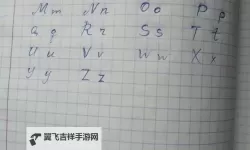 Mm Nn Oo Pp
Qq Rr Ss Tt
Uu Vv Ww Xx
Yy Zz
翼飞吉祥手游网